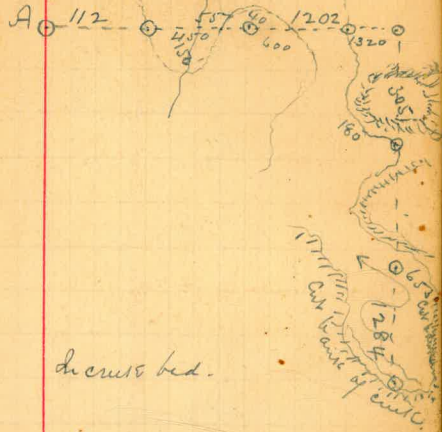 A 112 557 40 1202
450 600 1320
150
305
180
653 cut
284
Cut bank of creek
In creek bed.